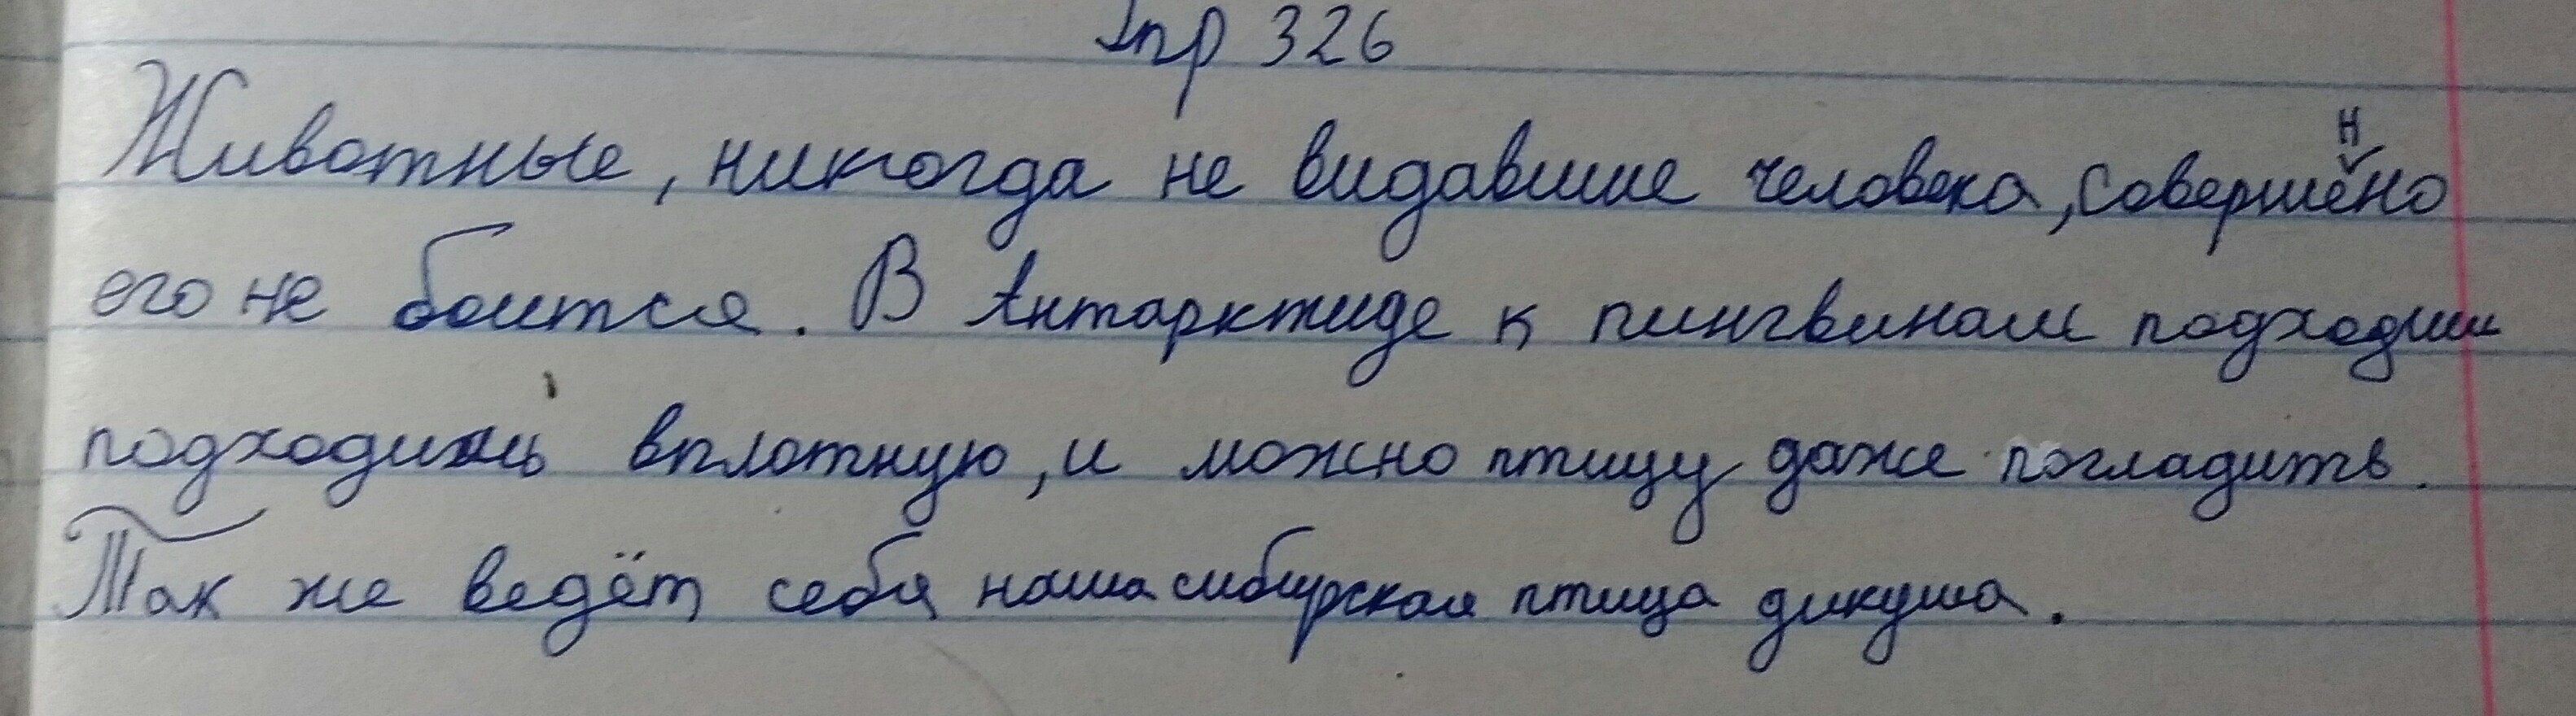 Упр 326
Животные, никогда не видавшие человека, совершенно
его не боится. В Антарктиде к пингвинам подходиш
подходишь вплотную, и можно птицу даже погладить.
Так же ведёт себя наша сибирская птица дикуша.